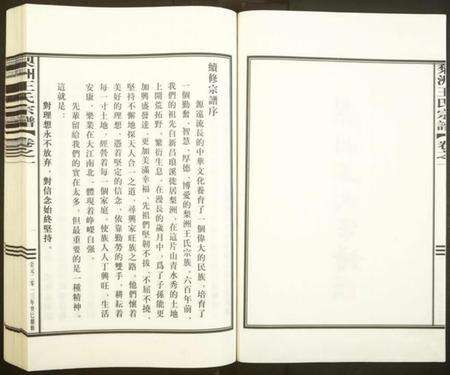 梨洲王氏宗譜
卷之一
續修宗譜序
源遠流長的中華文化養育了一個偉大的民族，培育了
一個勤奮、智慧、厚德、博愛的梨洲王氏宗族。六百年前，
我們的祖先自新呂琅溪徙居梨洲，在這片山青水秀的土地
上開荒拓野，繁衍生息，在漫長的歲月中，爲了子孫能更
加興盛發達、更加美滿幸福，先祖們堅韌不拔、不屈不撓，
堅持不懈地探天人合一之道，尋興家旺族之路。他們懷着
美好的理想，憑着堅定的信念，依靠勤勞的雙手，耕耘着
每一寸土地，經營着每一個家庭，使族人人丁興旺、生活
安康，樂業在大江南北，一體現着崢嶸自强。
先輩留給我們的實在太多，但最重要的是一種精神，
這就是：
對理想永不放弃，對信念始終堅持。
洲王氏宗譜【卷之一
一